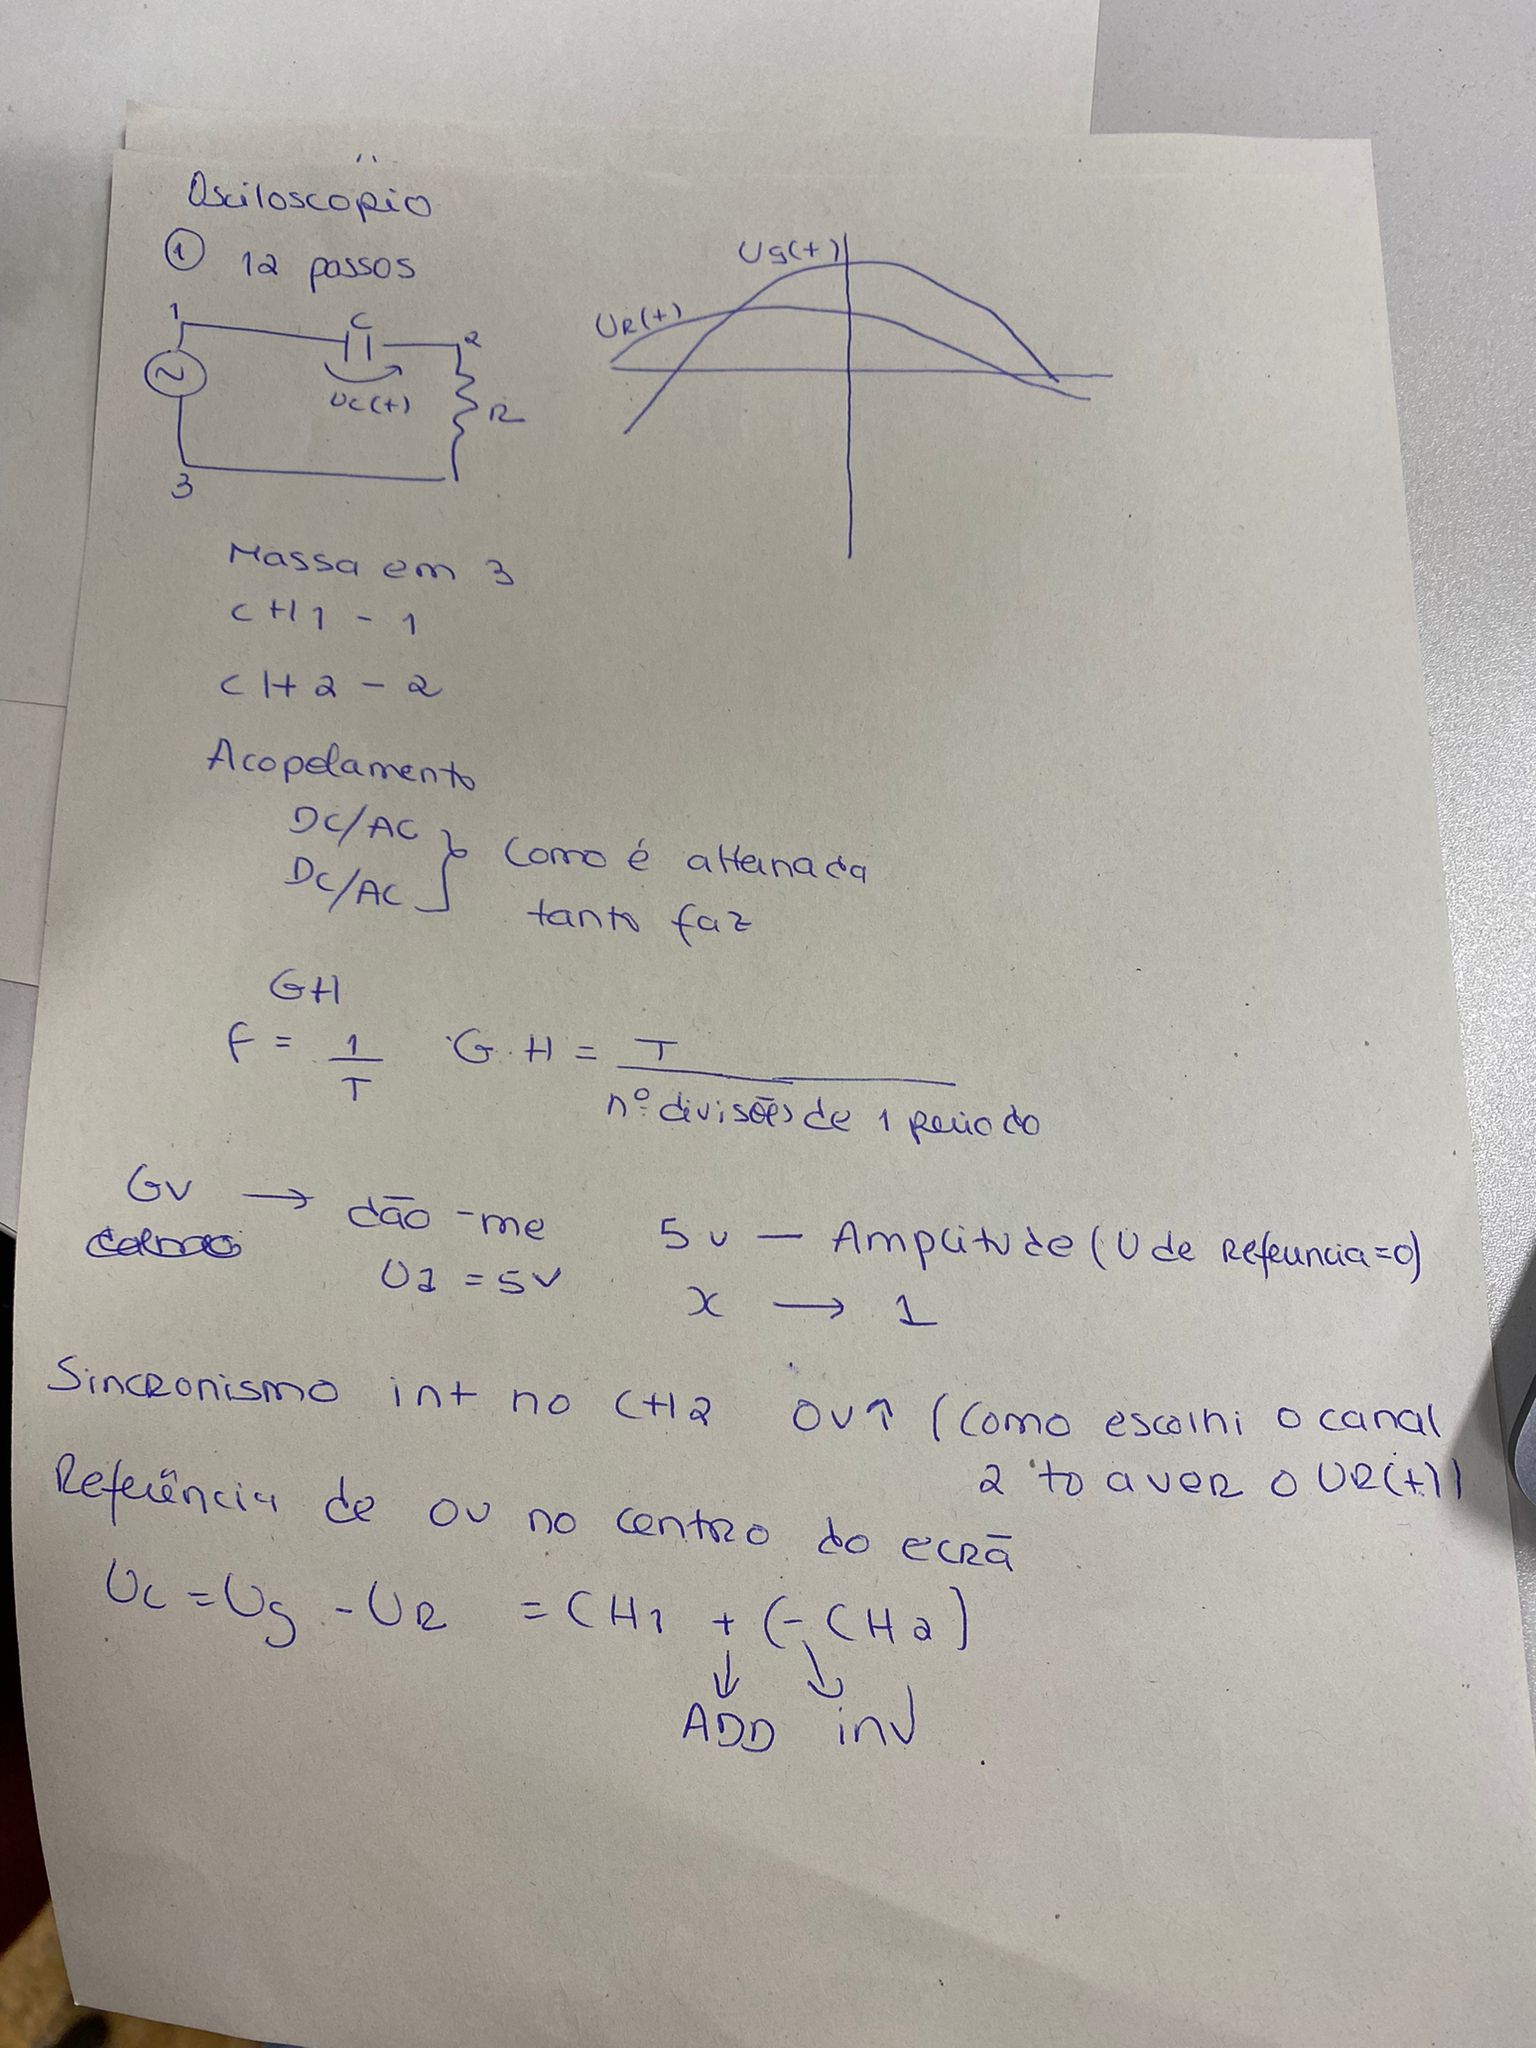 Osciloscopio
1 12 passos
Ug(t)
UR(t)
1
C
2
Uc(t)
R
3
Massa em 3
CH1 - 1
CH2 - 2
Acopelamento
DC/AC
DC/AC
Como é alternada
tanto faz
GH
f = 1/T G.H = T / nº divisões de 1 periodo
GV → dão-me 5v — Amplitude (U de Referencia=0)
U2 = 5V x → 1
Sincronismo int no CH2 0V↑ (Como escolhi o canal
2 to a ver o UR(t))
Referência de 0V no centro do ecrã
Uc = Ug - UR = CH1 + (-CH2)
↓ ↓
ADD inv